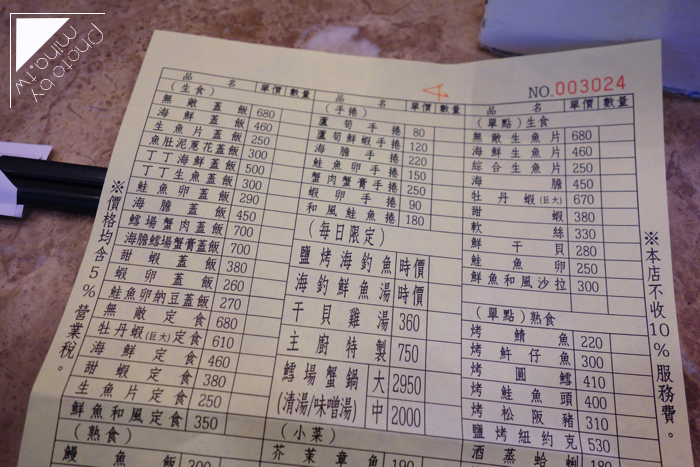 photo by
mina.tw
NO.003024
品名 單價 數量
(生食)
無敵蓋飯 680
海鮮蓋飯 460
生魚片蓋飯 250
魚肚泥蔥花蓋飯 300
丁丁海鮮蓋飯 500
丁丁生魚蓋飯 300
鮭魚卵蓋飯 290
海膽蓋飯 450
鱈場蟹肉蓋飯 700
海膽鱈場蟹膏蓋飯 700
甜蝦蓋飯 380
蝦卵蓋飯 260
鮭魚卵納豆蓋飯 270
無敵定食 680
牡丹蝦(巨大)定食 610
海鮮定食 460
甜蝦定食 380
生魚片定食 250
鮮魚和風定食 350
(熟食)
鰻魚飯 300
品名 單價 數量
(手捲)
蘆筍手捲 80
蘆筍鮮蝦手捲 120
海膽手捲 220
鮭魚卵手捲 150
蟹肉蟹膏手捲 250
蝦卵手捲 90
和風鮭魚捲 180
(每日限定)
鹽烤海釣魚 時價
海釣鮮魚湯 時價
干貝雞湯 360
主廚特製 750
鱈場蟹鍋 大 2950
(清湯/味噌湯) 中 2000
(小菜)
芥茉章魚 190
品名 單價 數量
(單點)生食
無敵生魚片 680
海鮮生魚片 460
綜合生魚片 250
海膽 450
牡丹蝦(巨大) 670
甜蝦 380
軟絲 330
鮮干貝 280
鮭魚卵 250
鮮魚和風沙拉 300
(單點)熟食
烤鯖魚 220
烤魽仔魚 300
烤圓鱈 410
烤鮭魚頭 400
烤松阪豬 310
鹽烤紐約克 530
酒蒸蛤蜊 180
※價格均含5%營業稅。
※本店不收10%服務費。